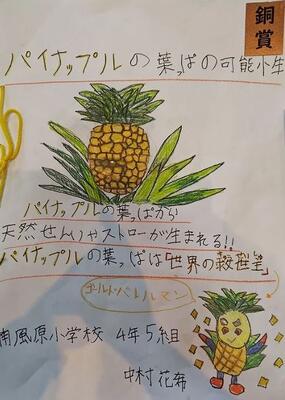 銅賞
パイナップルの葉っぱの可能性
パイナップルの葉っぱから
天然せんいやストローが生まれる!!
パイナップルの葉っぱは「世界の
ゴールドバレルマン
南風原小学校 4年5組
中村 花